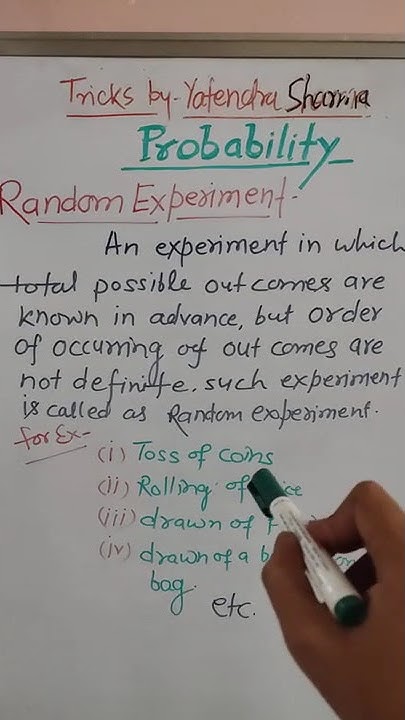 Tricks by- Yatendra Sharma
Probability
Random Experiment-
An experiment in which
total possible out comes are
known in advance, but order
of occurring of out comes are
not definite. such experiment
is called as Random experiment.
for Ex-
(i) Toss of coins
(ii) Rolling of
(iii) drawn of
(iv) drawn of a
bag.
etc.